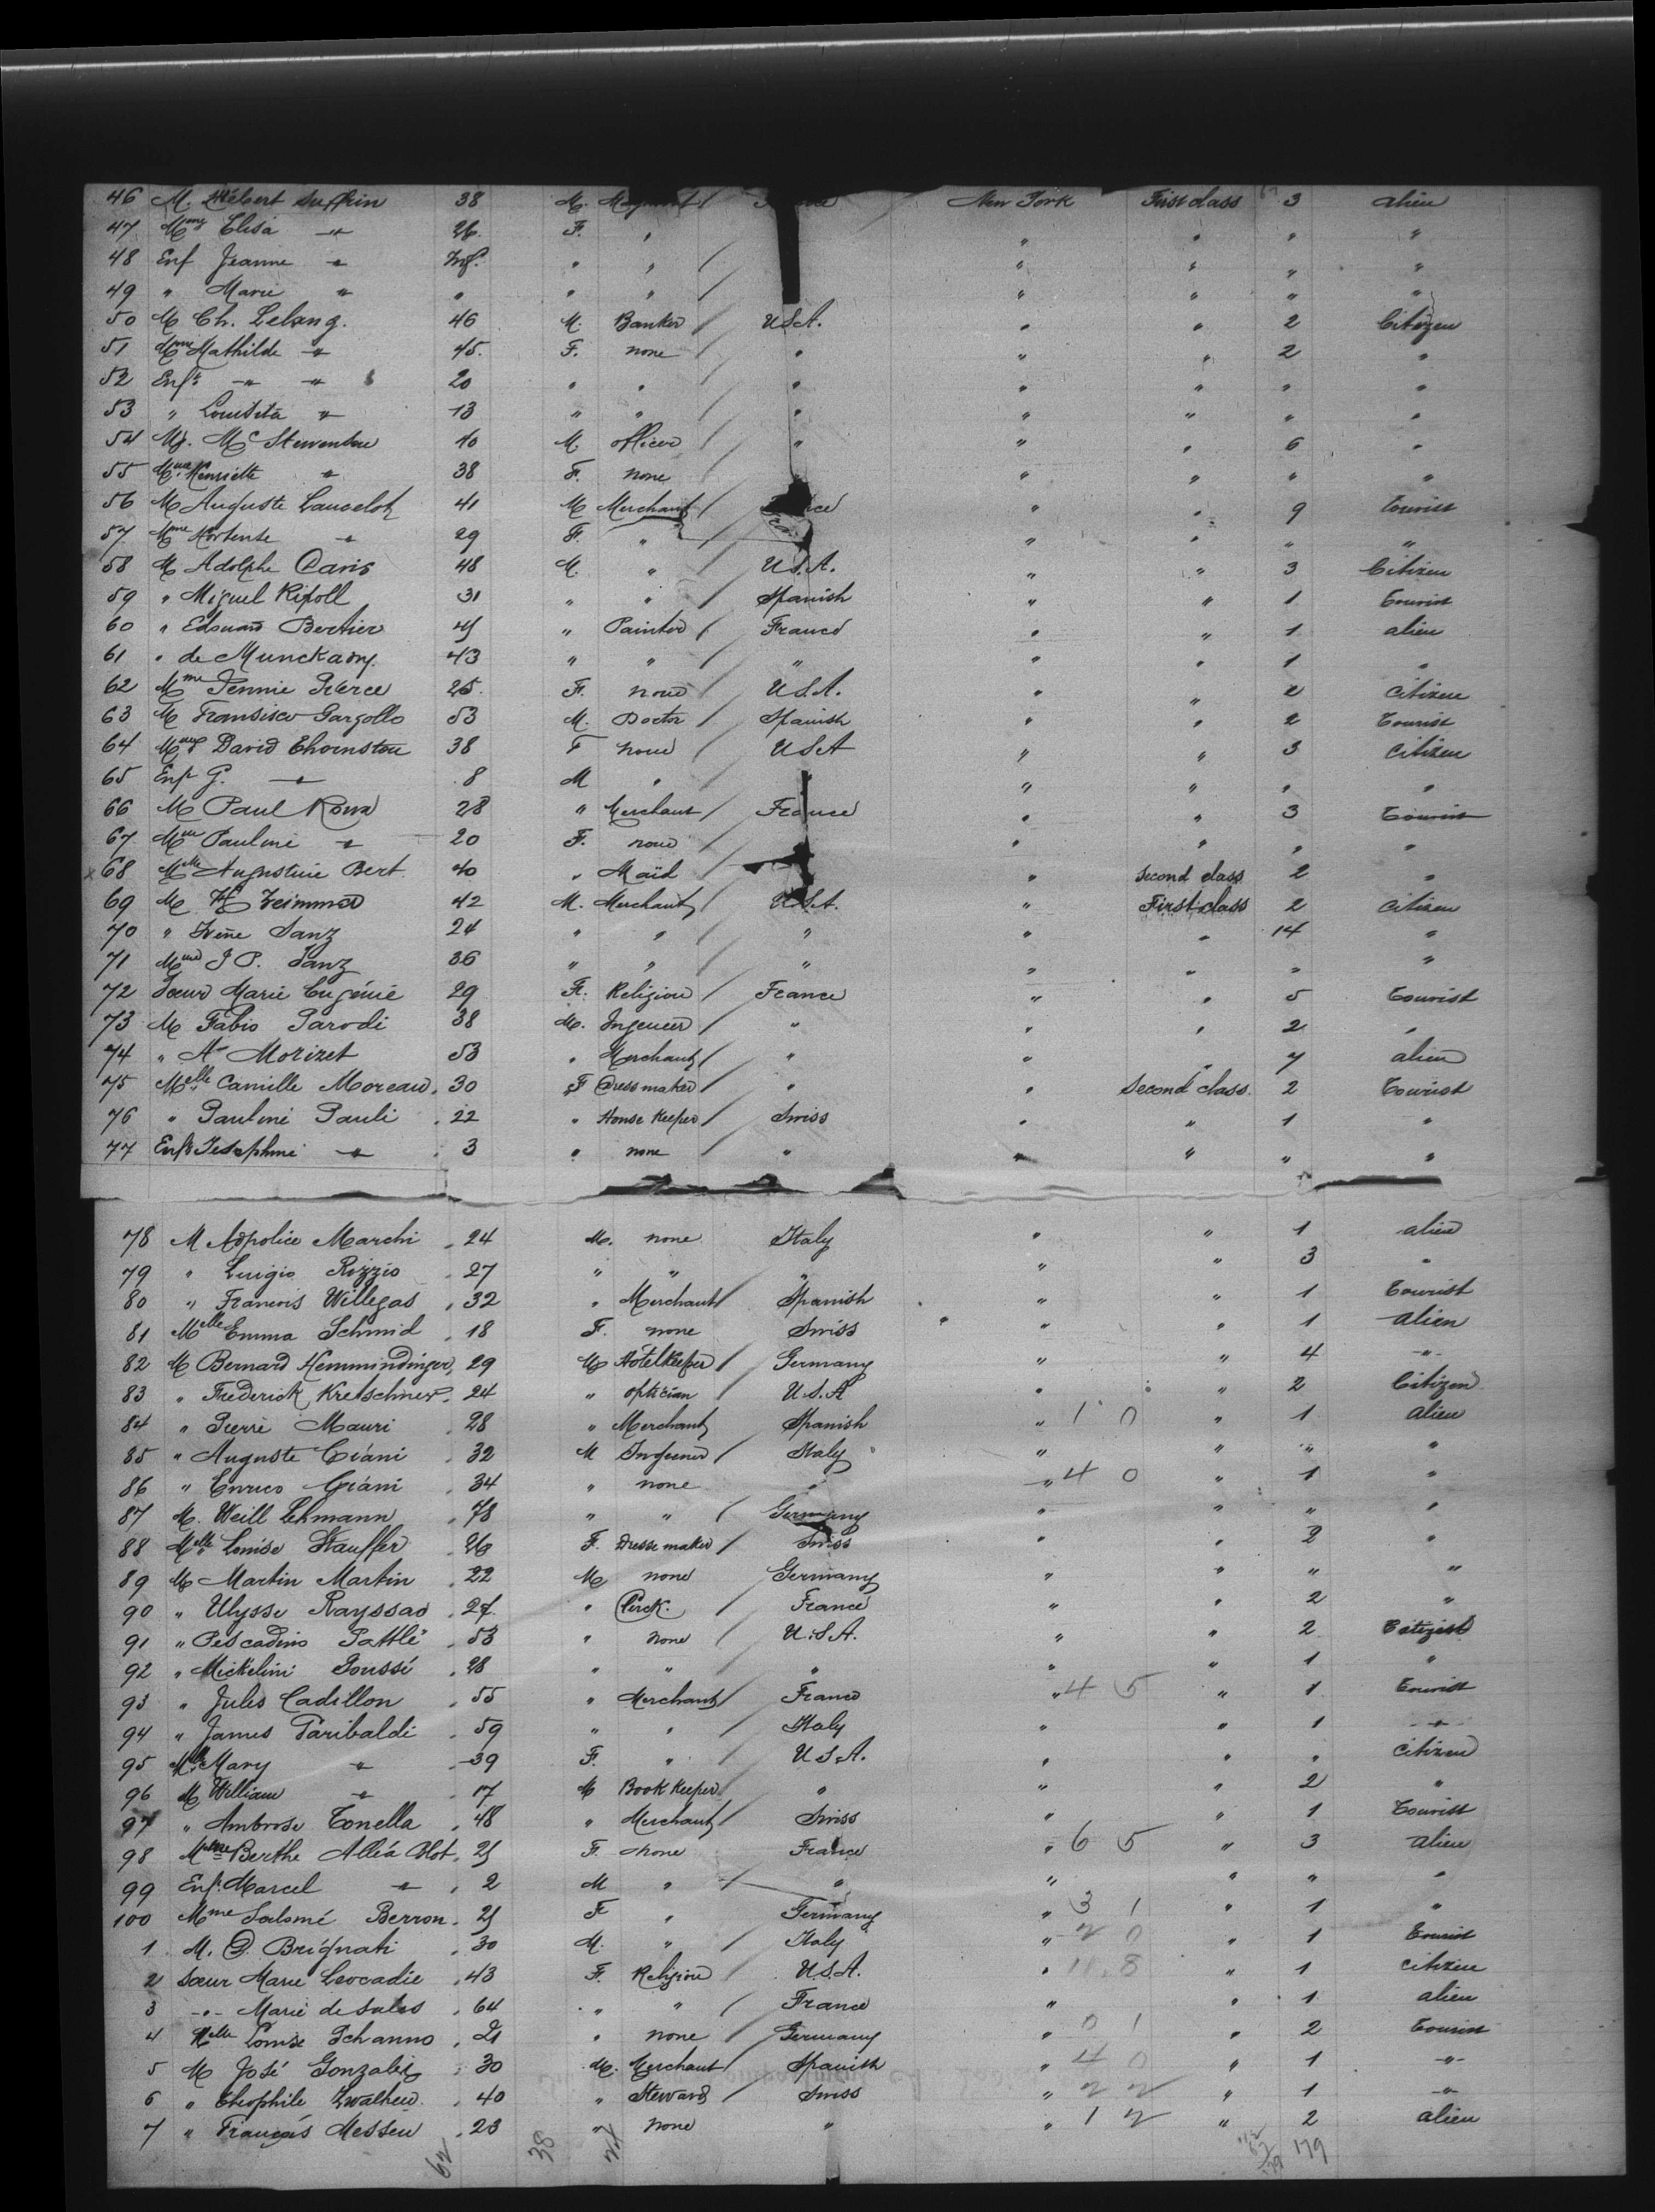 46 M. Hébert 38 M. New York First class 3 alien
47 Mme Elisa " 26 F. " " " " "
48 Enf Jeanne " Inf. " " " " " "
49 " Marie " " " " " " " "
50 M Ch. Lelong. 46 M. Banker U.S.A. " " 2 Citizen
51 Mme Mathilde " 45. F. none " " " 2 "
52 Enft " " 20 " " " " " " "
53 " " 13 " " " " " " "
54 Mr. Mc 40 M. officer " " " 6 "
55 Mme Henriette " 38 F. none " " " "
56 M Auguste 41 M Merchant " " 9 tourist
57 Mme Hortense " 29 F. " " " " "
58 M Adolphe Davis 48 M. " U.S.A. " " 3 Citizen
59 " Miguel Ripoll 31 " " Spanish " " 1 tourist
60 " Edouard Bertier 45 " Painter France " " 1 alien
61 " de 43 " " " " " 1 "
62 Mme Jennie Pierce 25. F. none U.S.A. " " 2 Citizen
63 M Fransisco Gargollo 53 M. Doctor Spanish " " 2 tourist
64 Mme David 38 F none USA " " 3 Citizen
65 Enft G. " 8 M " " " " "
66 M Paul Roux 28 " Merchant France " " 3 tourist
67 Mme Pauline " 20 F. none " " " "
x 68 Melle Augustine Bert 40 " Maïd " Second class 2 "
69 M 42 M. Merchant U.S.A. " First class 2 Citizen
70 " Sanz 24 " " " " " 14 "
71 Mme J P. Sanz 36 " " " " " " "
72 Soeur Marie Eugénie 29 F. Religion France " " 5 tourist
73 M Fabio Parodi 38 M. Ingeneer " " " 2 "
74 " A. Morizet 53 " Merchant " " " 7 alien
75 Melle Camille Moreau 30 F Dressmaker " " Second class. 2 tourist
76 " Pauline Pauli 22 " House Keeper Swiss " " 1 "
77 Enft Josephine " 3 " none " " " " "
78 M Marchi 24 M. none Italy " " 1 alien
79 " Luigio Rizzio 27 " " " " " 3 "
80 " Francois Willegas 32 " Merchant Spanish " " 1 tourist
81 Melle Emma Schmid 18 F. none Swiss " " 1 alien
82 M Bernard Hemmindinger 29 M Hotelkeeper Germany " " 4 "
83 " Frederick Kretschmer 24 " optician U.S.A " " 2 Citizen
84 " Pierre Mauri 28 " Merchant Spanish " 1 0 " 1 alien
85 " Auguste Ciáni 32 M Ingeneer Italy " " " "
86 " Enrico Ciáni 34 " none " " 4 0 " 1 "
87 M. Weill Lehmann 78 " " Germany " " " "
88 Melle Louise Stauffer 26 F. Dresse maker Swiss " " 2 "
89 M Martin Martin 22 M none Germany " " " "
90 " Ulysse 27. " Clerck. France " " 2 "
91 " 53 " none U.S.A. " " 2 Citizen
92 " 28 " " " " " 1 "
93 " Jules Cadillon 55 " Merchant France " 4 5 " 1 tourist
94 " James Garibaldi 59 " " Italy " " 1 "
95 Mme Mary " 39 F. " U.S.A. " " " Citizen
96 M William " 17 M Book Keeper " " " 2 "
97 " Ambrose Tonella 48 " Merchant Swiss " " 1 tourist
98 Mme Berthe 25 F. none France " 6 5 " 3 alien
99 Enft. Marcel " 2 M " " " " " "
100 Mme Salomé Berron 25 F " Germany " 3 1 " 1 "
1 M. Brignati 30 M. " Italy " 2 0 " 1 tourist
2 Soeur Marie Leocadie 43 F. Religion U.S.A. " " 1 citizen
3 " Marie de Sales 64 " " France " " 1 alien
4 Melle Louise Schanno 21 " none Germany " 0 1 " 2 tourist
5 M José Gonzalez 30 M. Merchant Spanish " 4 0 " 1 "
6 " Theophile 40 " Steward Swiss " 2 2 " 1 "
7 " François Messeu 23 " none " " 1 2 " 2 alien
62 38 179